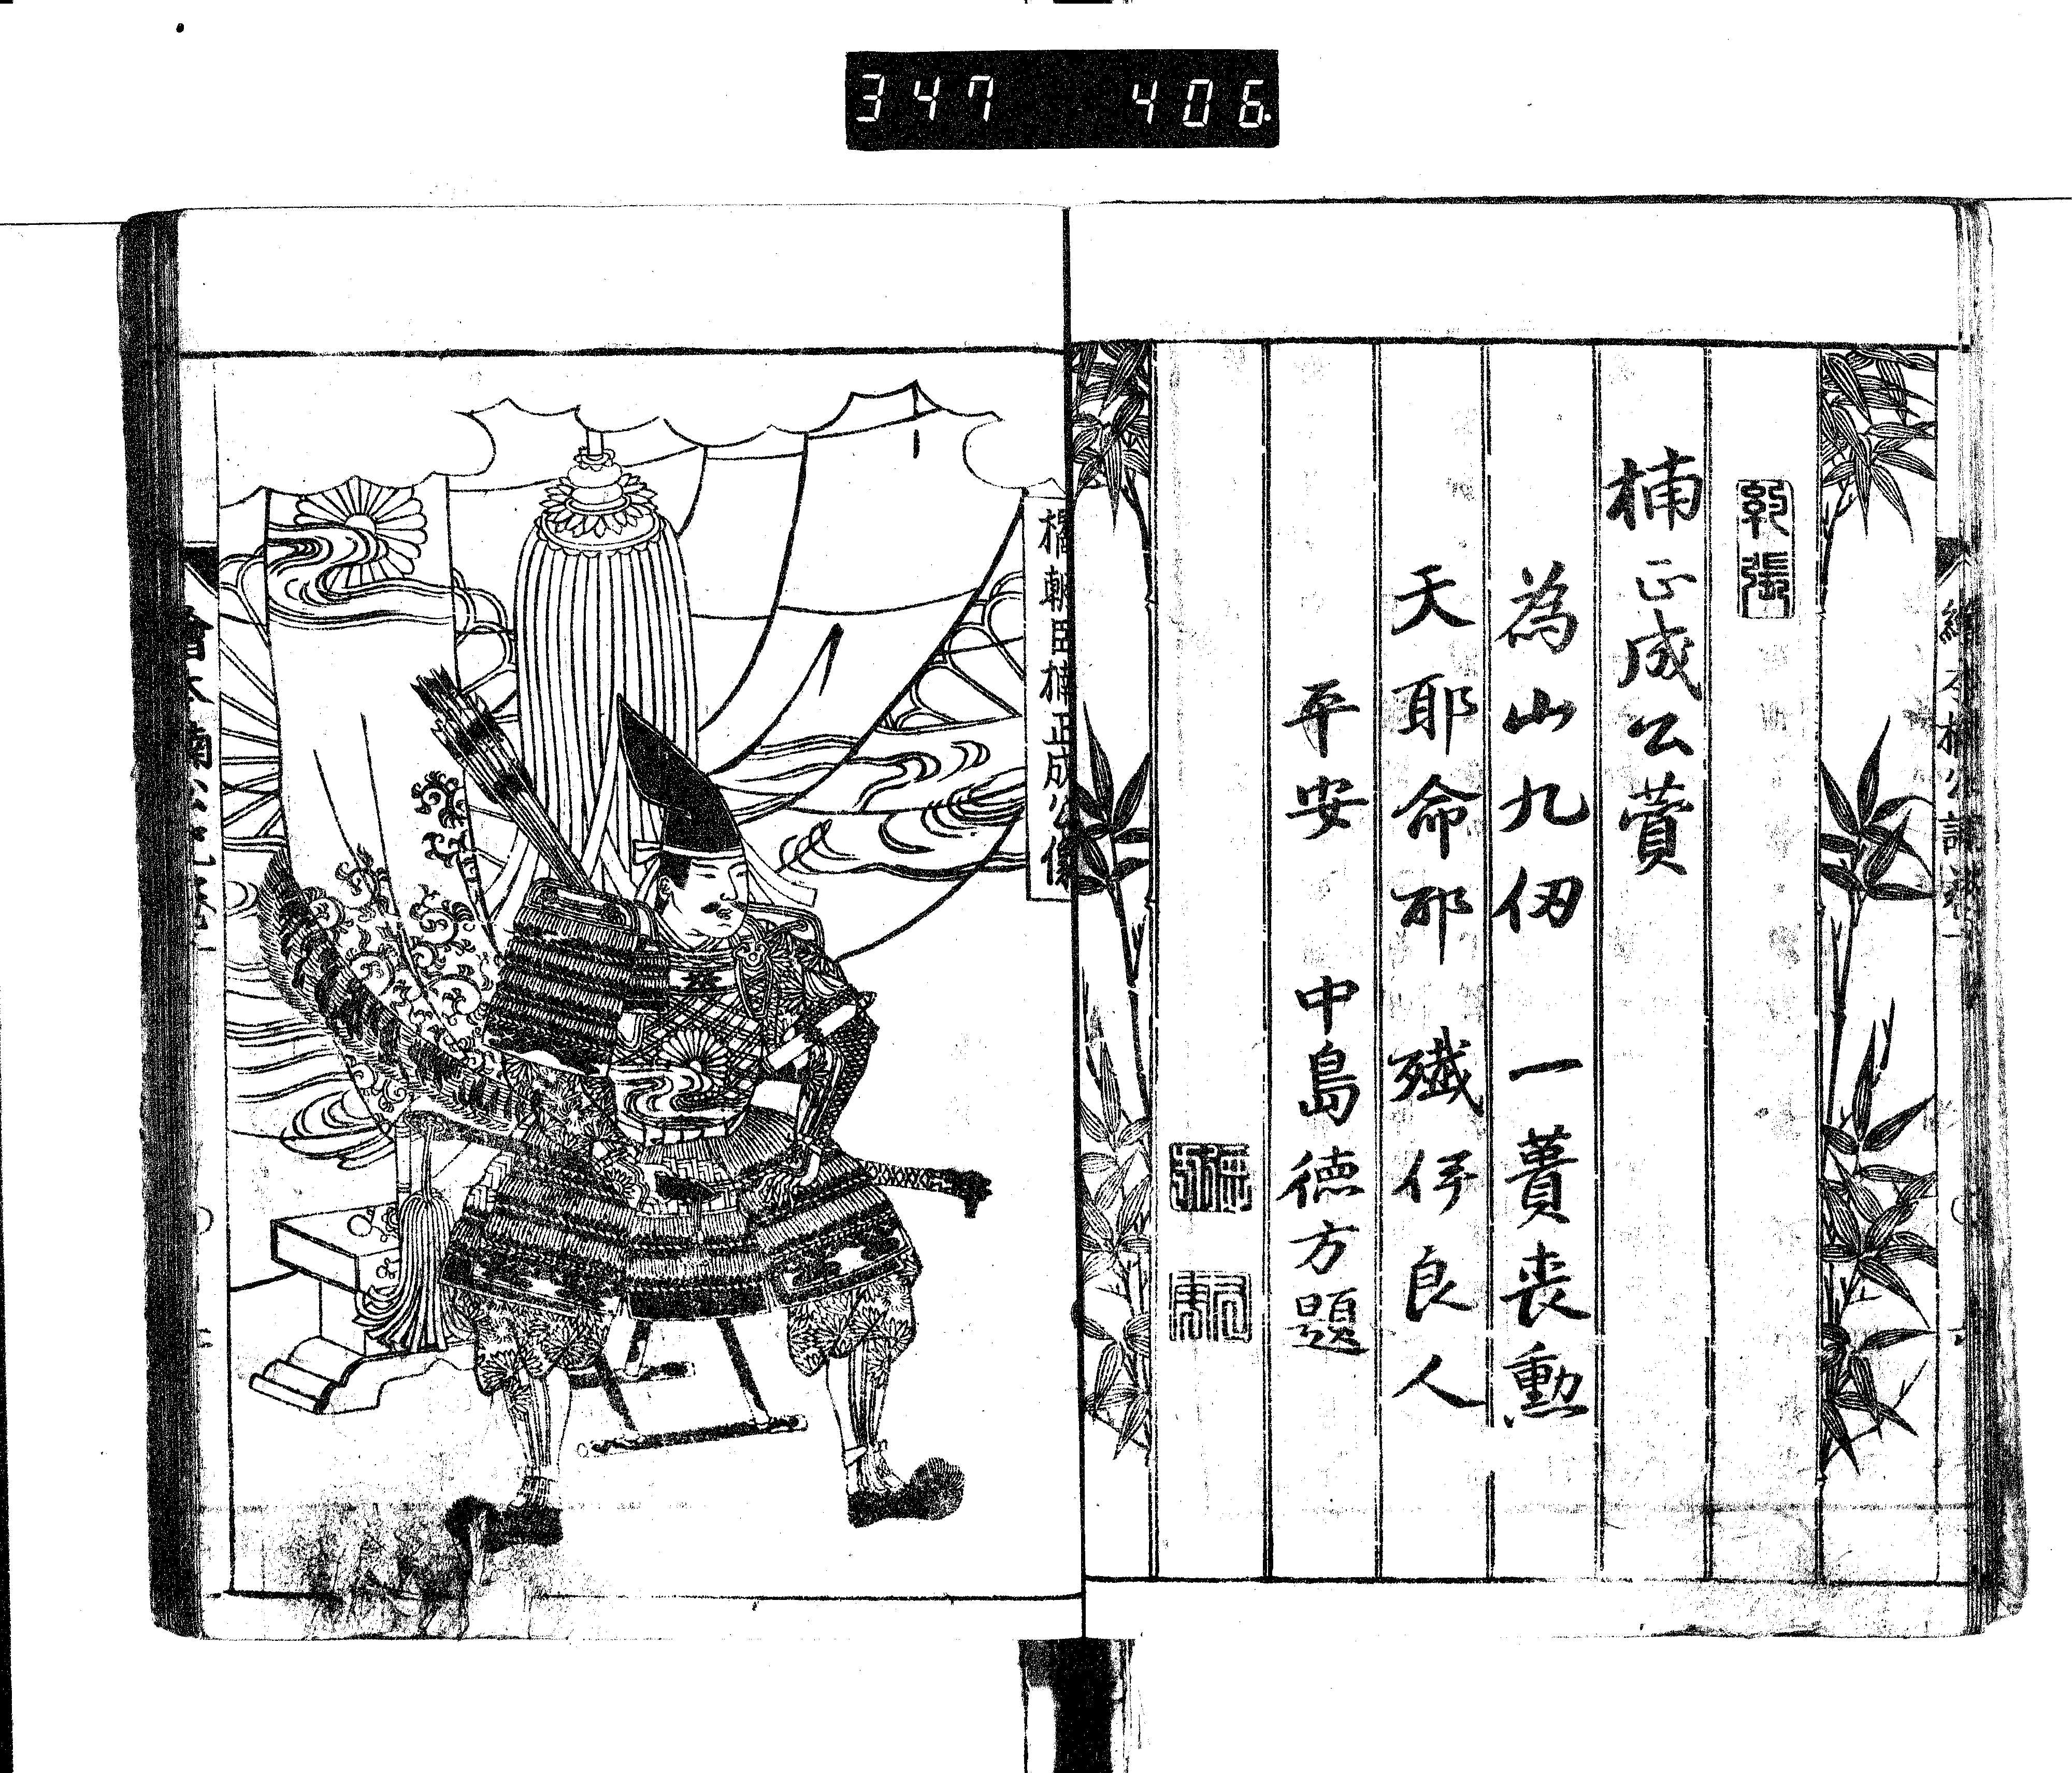 347 406
楠正成公賛
為山九仞 一蕢喪勲
天耶命耶 殲伊良人
平安 中島徳方題
橘朝臣楠正成公像